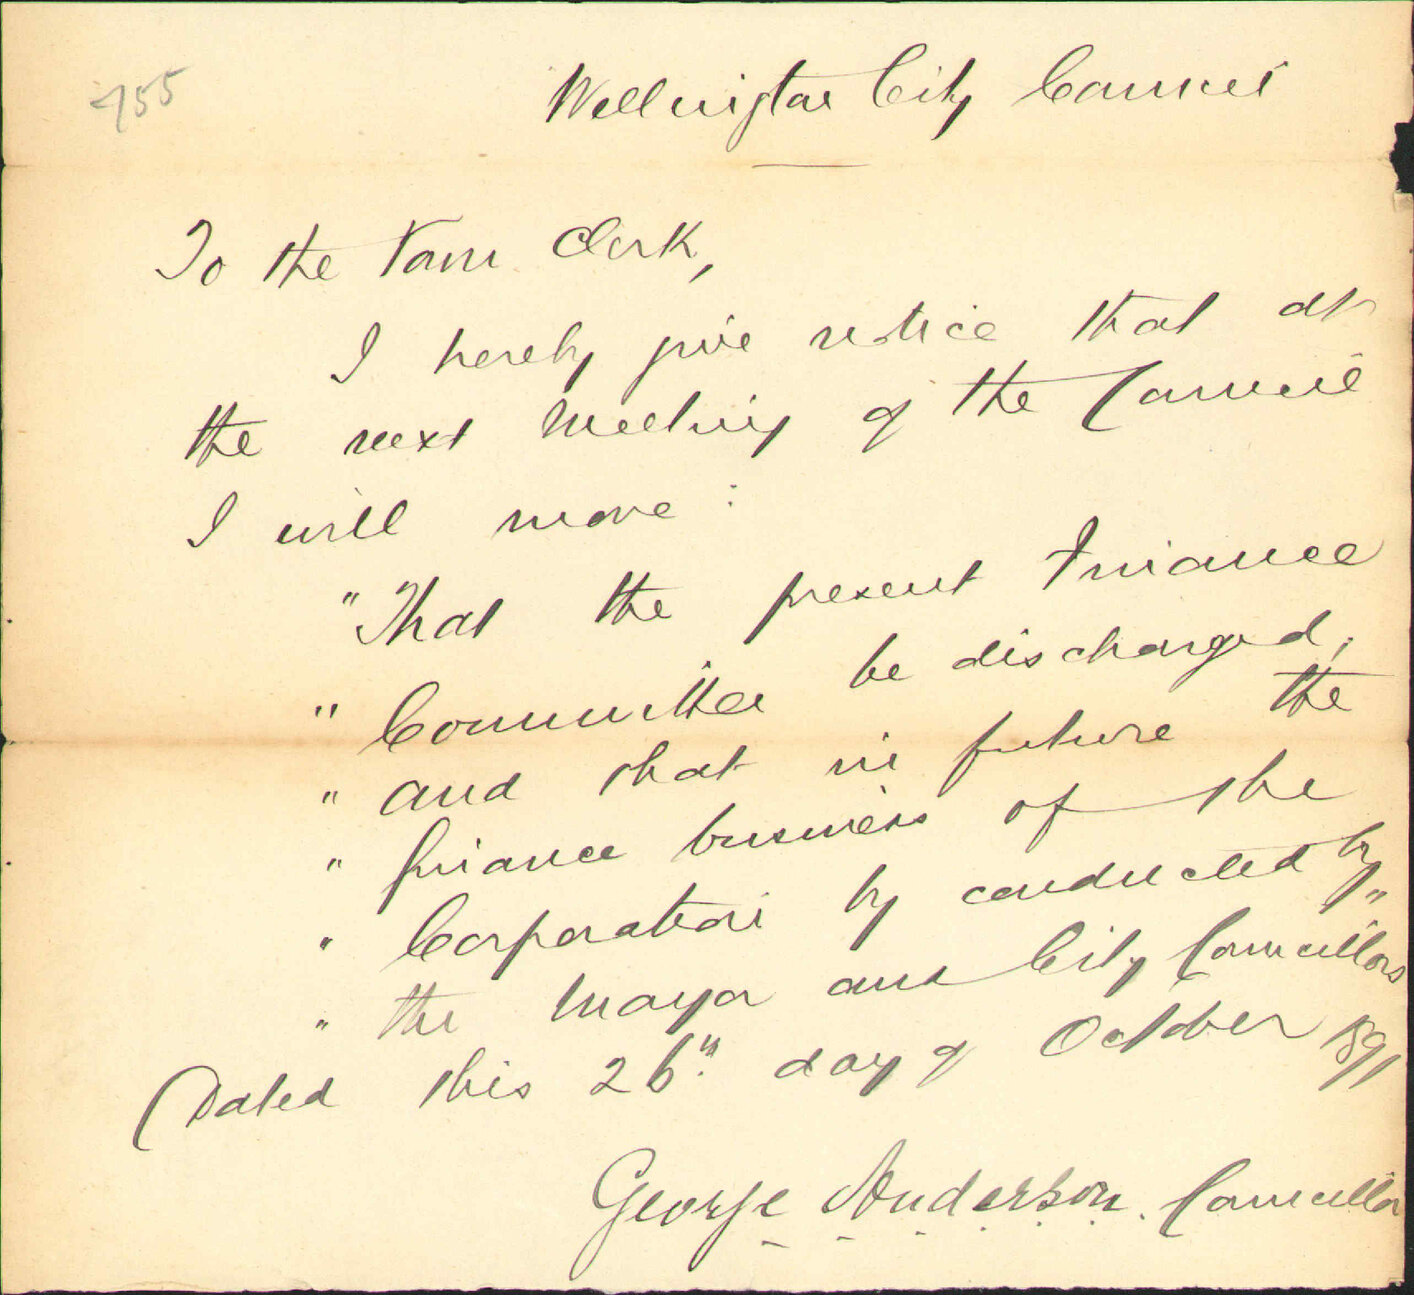 755
Wellington City Council
To the Town Clerk,
I hereby give notice that at
the next Meeting of the Council
I will move:
"That the present Finance
" Committee be discharged,
" and that in future the
" finance business of the
" Corporation by conducted by
" the Mayor and City Councillors"
Dated this 26th day of October 1891
George Anderson. Councillor